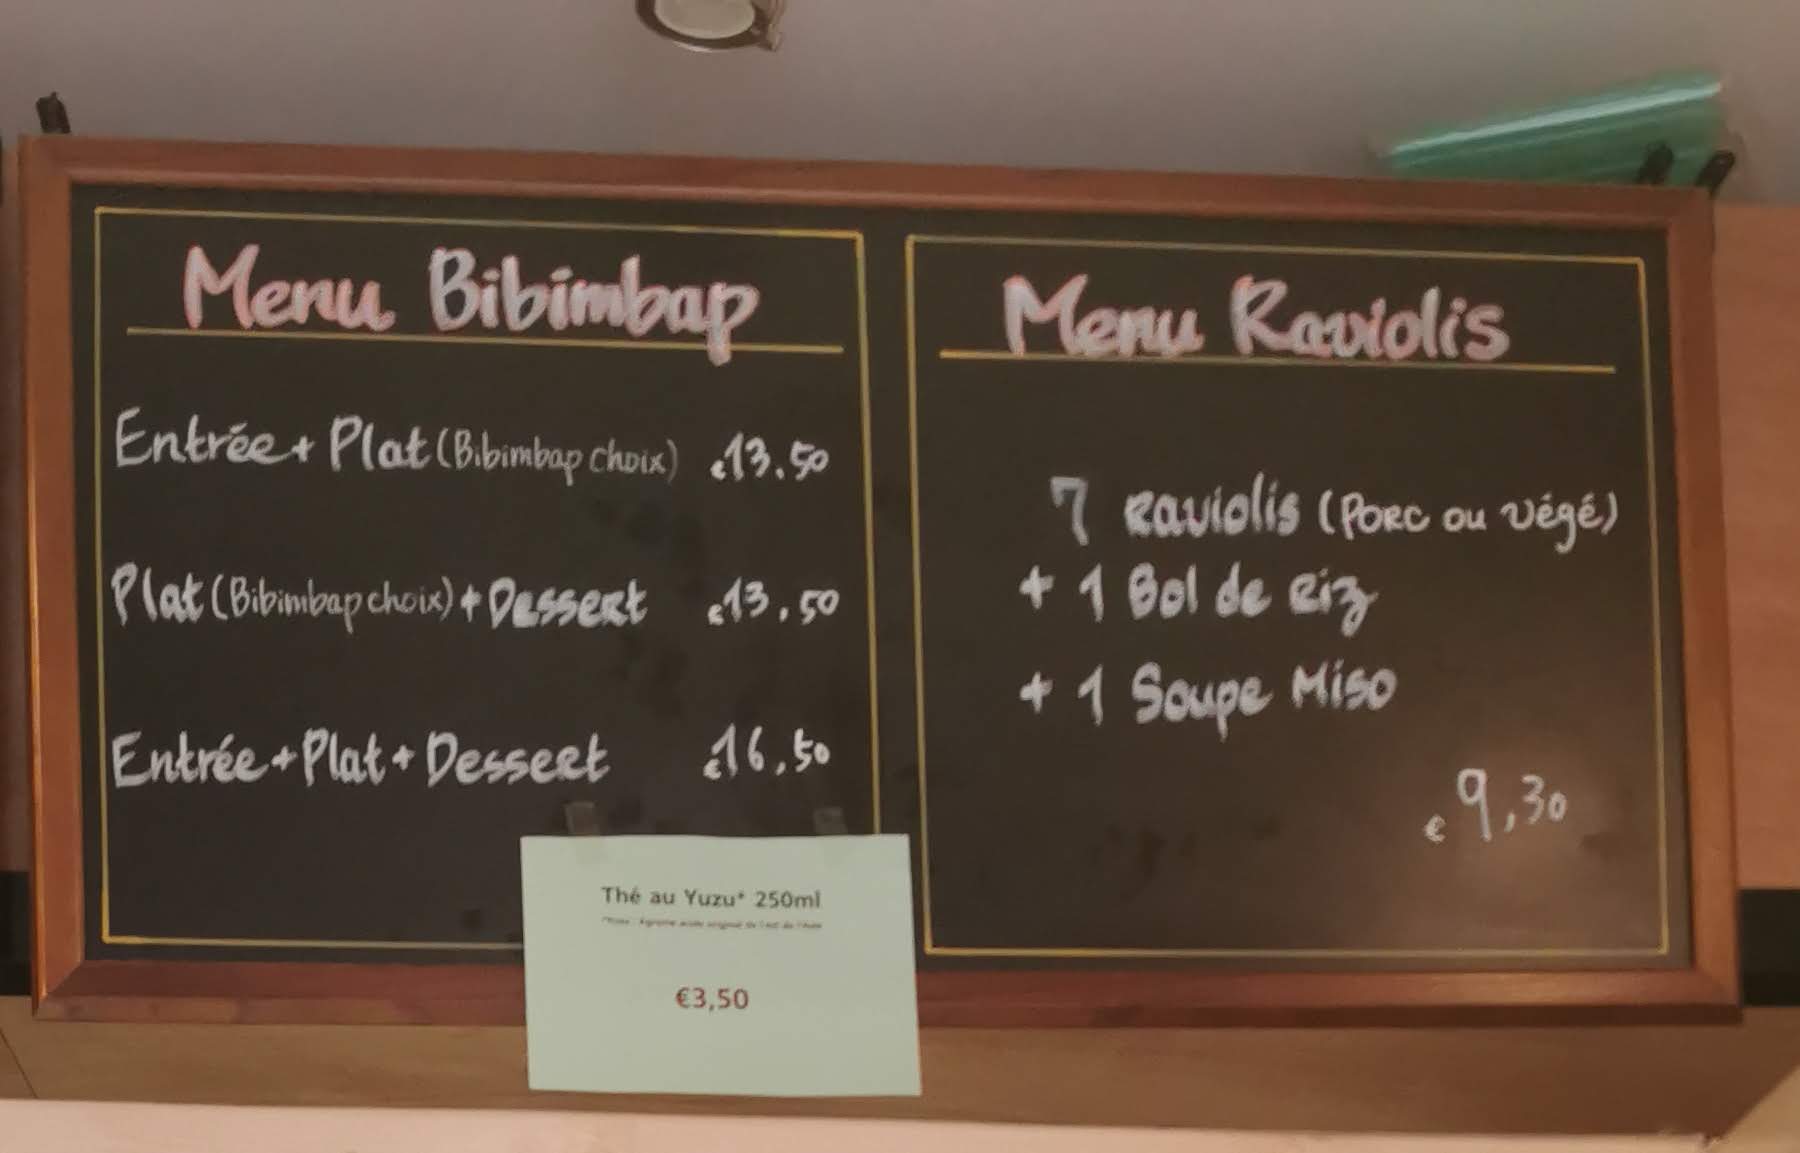 Menu Bibimbap
Entrée + Plat (Bibimbap choix) €13.50
Plat (Bibimbap choix) + Dessert €13,50
Entrée + Plat + Dessert €16,50
Menu Raviolis
7 Raviolis (Porc ou Végé)
+ 1 Bol de Riz
+ 1 Soupe Miso
€9,30
Thé au Yuzu* 250ml
€3,50